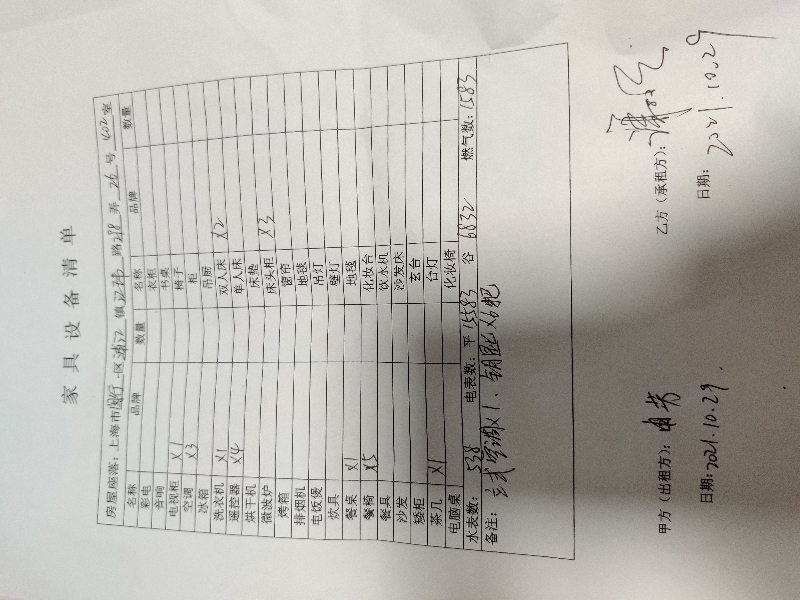 家具设备清单
房屋座落：上海市闵行区浦江镇江 路248弄26号402室
名称 品牌 数量 名称 品牌 数量
彩电 衣柜
音响 书桌
电视柜 X1 椅子
空调 X3 柜
冰箱 吊厨
洗衣机 X1 双人床 X2
遥控器 X4 单人床
烘干机 床垫
微波炉 床头柜 X3
烤箱 窗帘
排烟机 地毯
电饭煲 吊灯
炊具 壁灯
餐桌 X1 地毯
餐椅 X5 化妆台
餐具 饮水机
沙发 沙发床
矮柜 玄台
茶几 X1 台灯
电脑桌 化妆椅
水表数：538 电表数：平15583 谷6832 燃气数：1583
备注：立式空调X1、钥匙X6把
甲方（出租方）： 乙方（承租方）：
日期：2021.10.29. 日期：2021.10.29